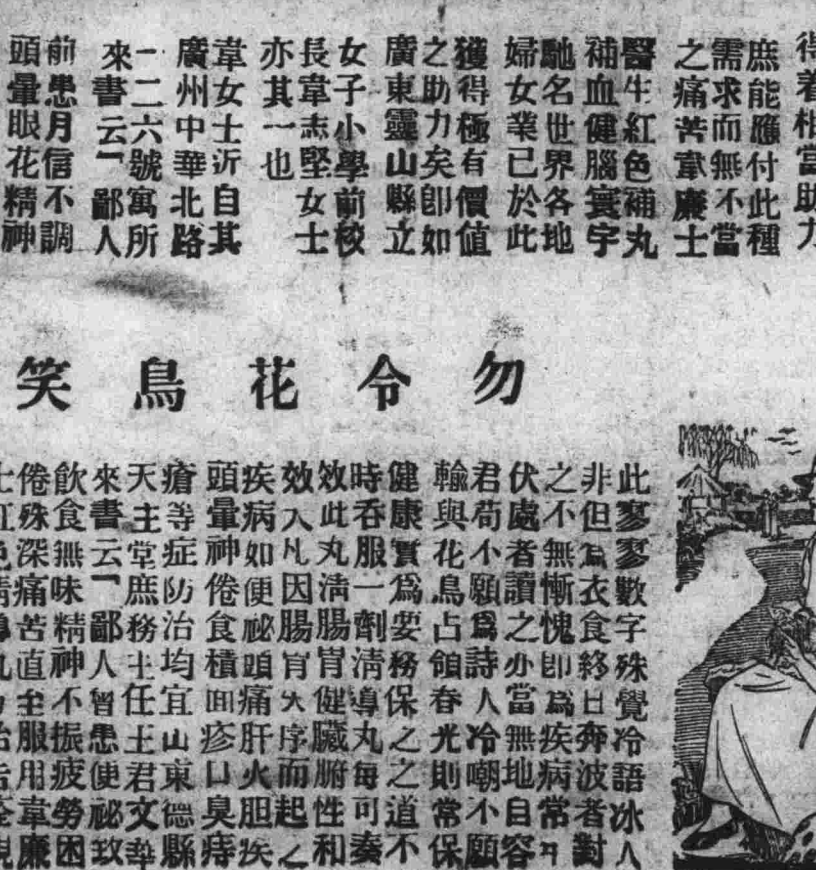 得着相當助力
庶能應付此種
需求而無不當
之痛苦韋廉士
醫生紅色補丸
補血健腦寰宇
馳名世界各地
婦女業已於此
獲得極有價值
之助力矣卽如
廣東靈山縣立
女子小學前校
長韋志堅女士
亦其一也
韋女士沂自其
廣州中華北路
一二六號寓所
來書云「鄙人
前患月信不調
頭暈眼花精神
勿令花鳥笑
此寥寥數字殊覺冷語冰人
非但爲衣食終日奔波者對
之不無慚愧卽爲疾病常
伏處者讀之亦當無地自容
君苟不願爲詩人冷嘲不願
輸與花鳥占領春光則常保
健康實爲要務保之之道不
時吞服一劑淸導丸每可奏
效此丸淸腸胃健臟腑性和
效入凡因腸胃大序而起之
疾病如便祕頭痛肝火胆疾
頭暈神倦食積面疹口臭痔
瘡等症防治均宜山東德縣
天主堂庶務主任王君文華
來書云「鄙人曾患便祕致
飮食無味精神不振疲勞困
倦殊深痛苦直至服用韋廉
士紅色淸導丸